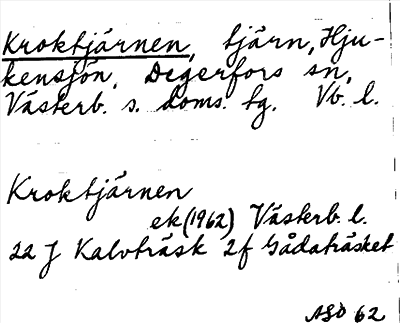 Kroktjärnen, tjärn, Hju-
kensjön, Degerfors sn,
Västerb. s. doms. tg. Vb. l.
Kroktjärnen
ek (1962) Västerb. l.
22 J Kalvträsk 2f Gådaträsket
ASD 62